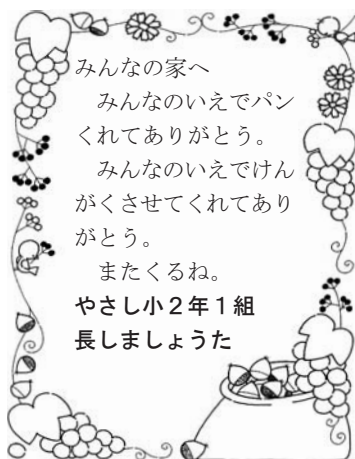 みんなの家へ
　みんなのいえでパン
くれてありがとう。
　みんなのいえでけん
がくさせてくれてあり
がとう。
　またくるね。
やさし小２年１組
長しましょうた